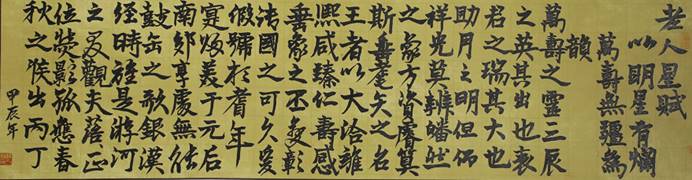 老人星賦
以明星有爛
萬壽無疆為
韻
萬壽之靈三辰
之英其出也表
君之瑞其大也
助月之明但仰
祥光莫辨皤然
之象方資睿算
斯垂耋矣之名
王者以大洽雍
熙咸臻仁壽感
垂象之丕變彰
清國之可久爰
假號於耆年
寔煥美于元后
南郊享處無能
鼓缶之歌銀漢
經時雖是游河
之叟觀夫落正
位熒影孤應春
秋之候出丙丁
甲辰年